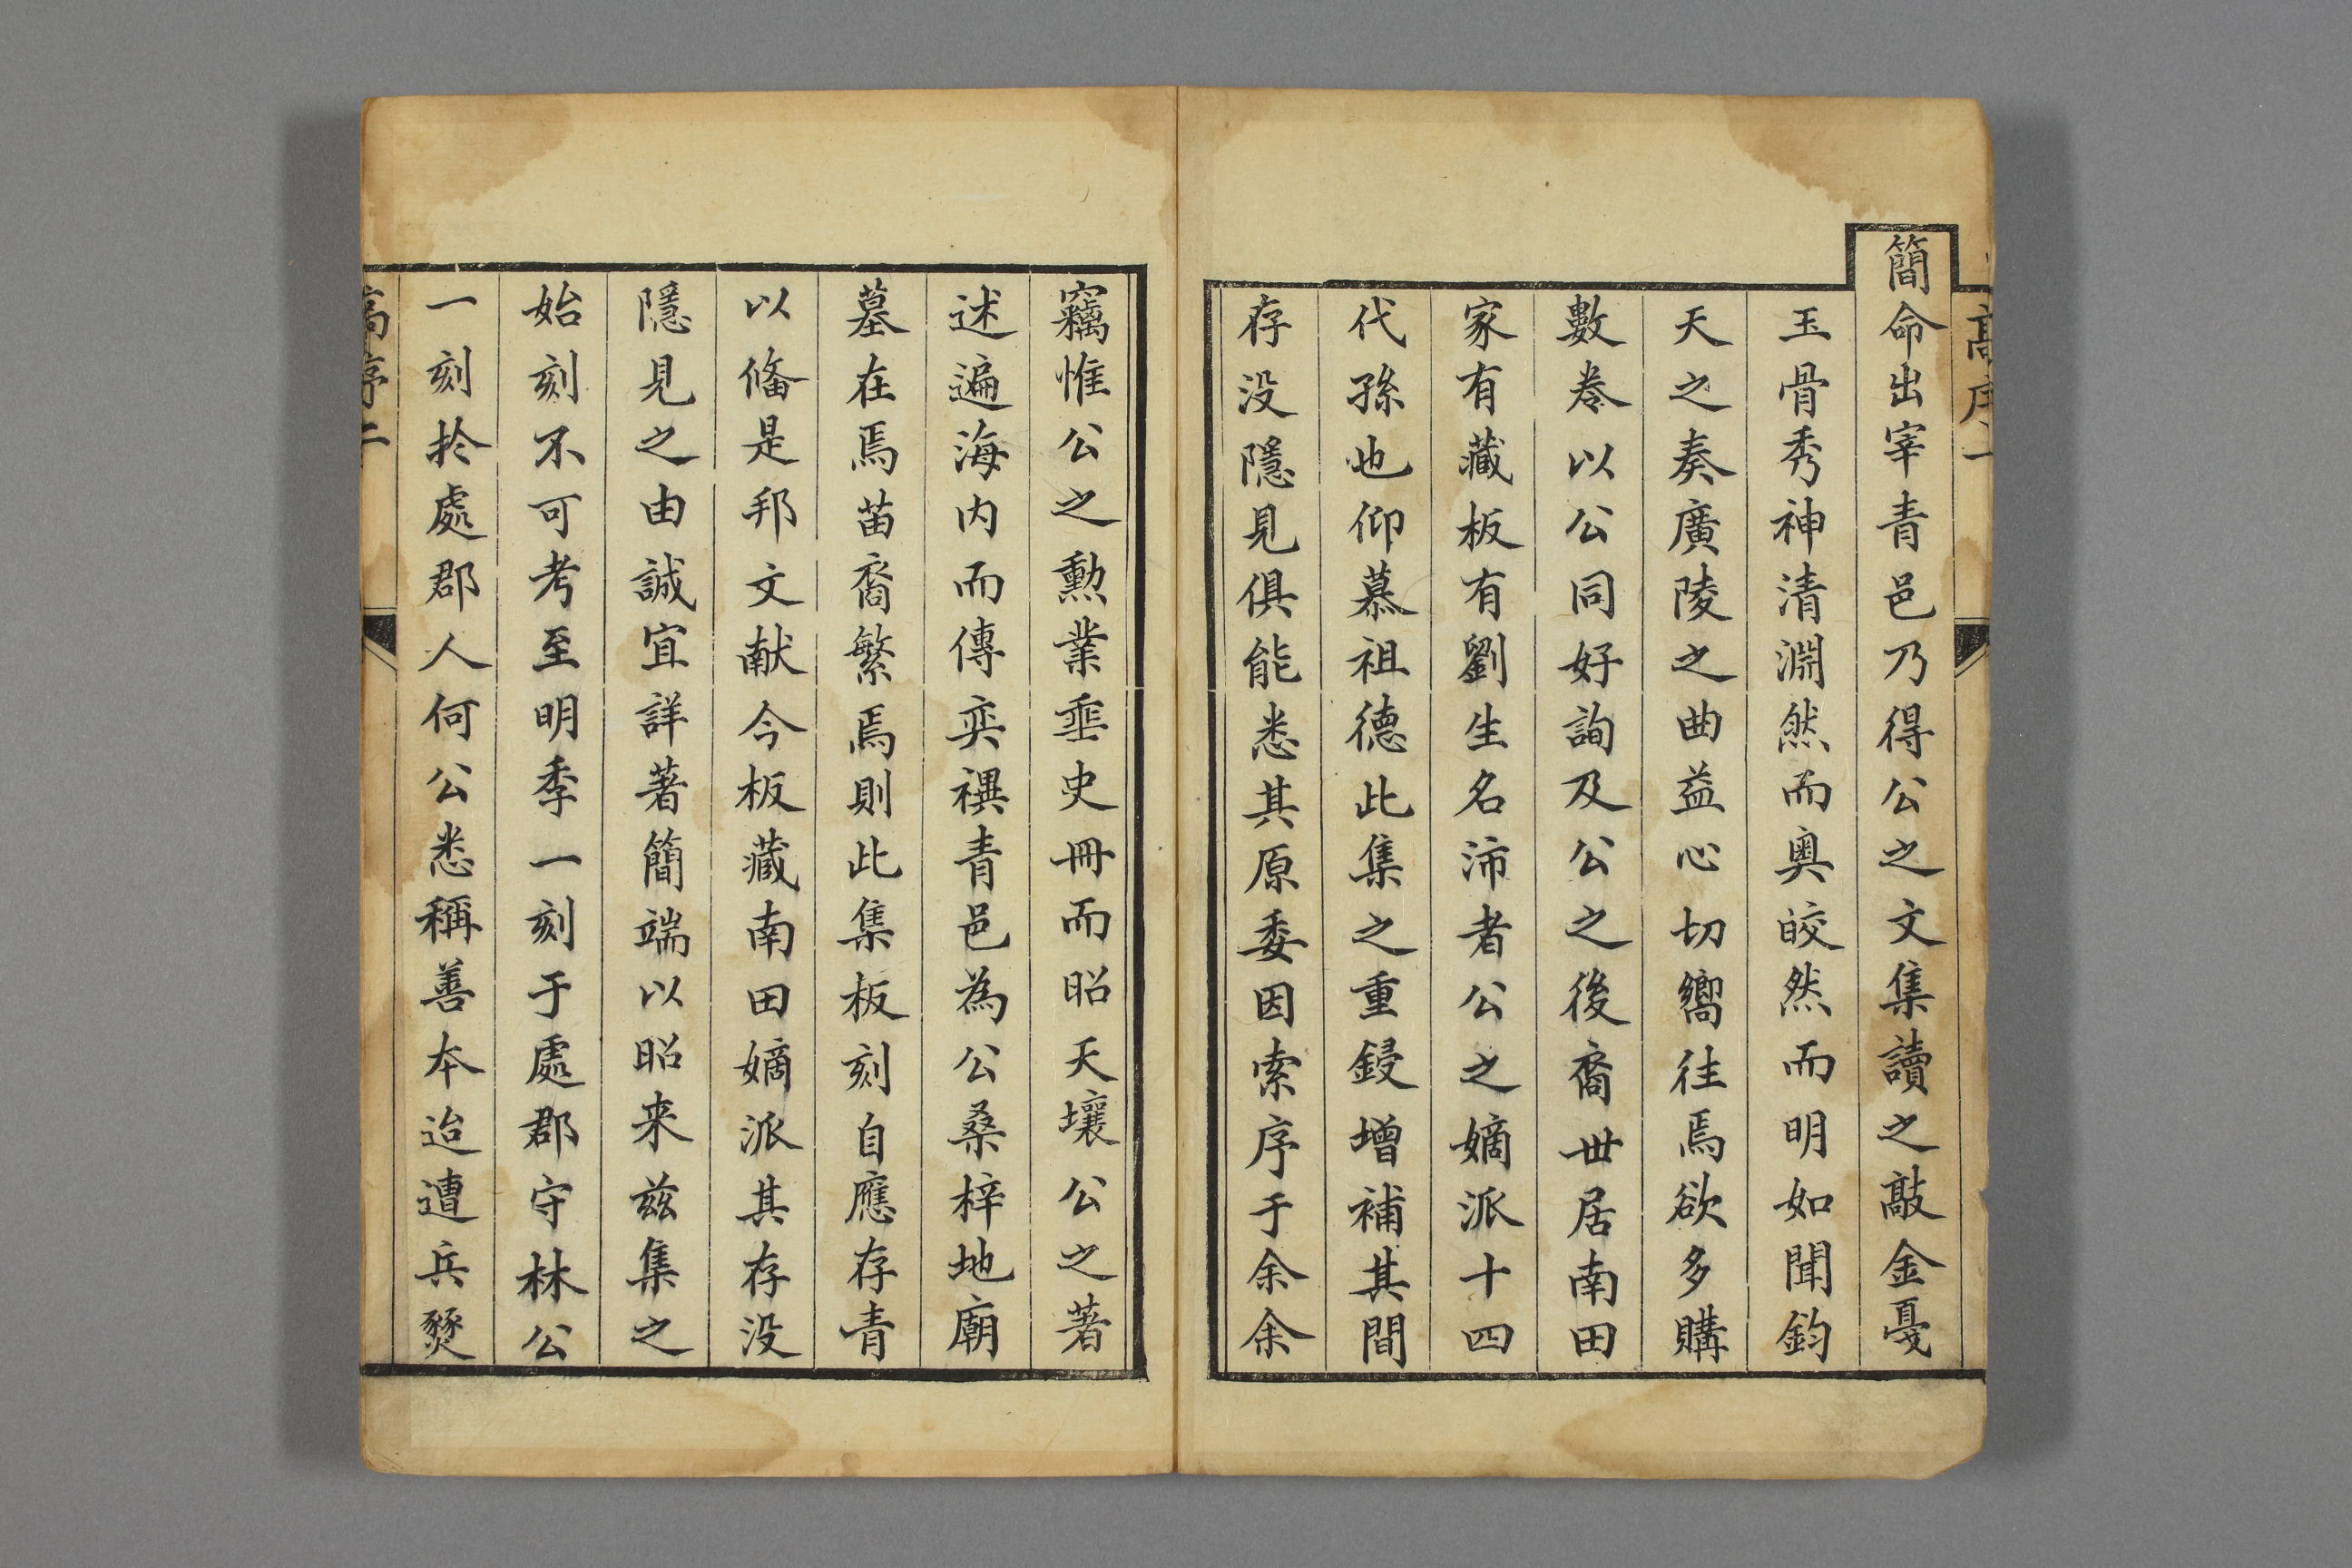 高序一
簡命出宰青邑乃得公之文集讀之敲金戞
玉骨秀神清淵然而奧皎然而明如聞鈞
天之奏廣陵之曲益心切嚮往焉欲多購
數卷以公同好詢及公之後裔世居南田
家有藏板有劉生名沛者公之嫡派十四
代孫也仰慕祖德此集之重鋟增補其間
存没隱見俱能悉其原委因索序于余余
竊惟公之勲業垂史冊而昭天壤公之著
述遍海内而傳奕禩青邑為公桑梓地廟
墓在焉苗裔繁焉則此集板刻自應存青
以俻是邦文献今板藏南田嫡派其存没
隱見之由誠宜詳著簡端以昭来兹集之
始刻不可考至明季一刻于處郡守林公
一刻扵處郡人何公悉稱善本迨遭兵燹
高序二